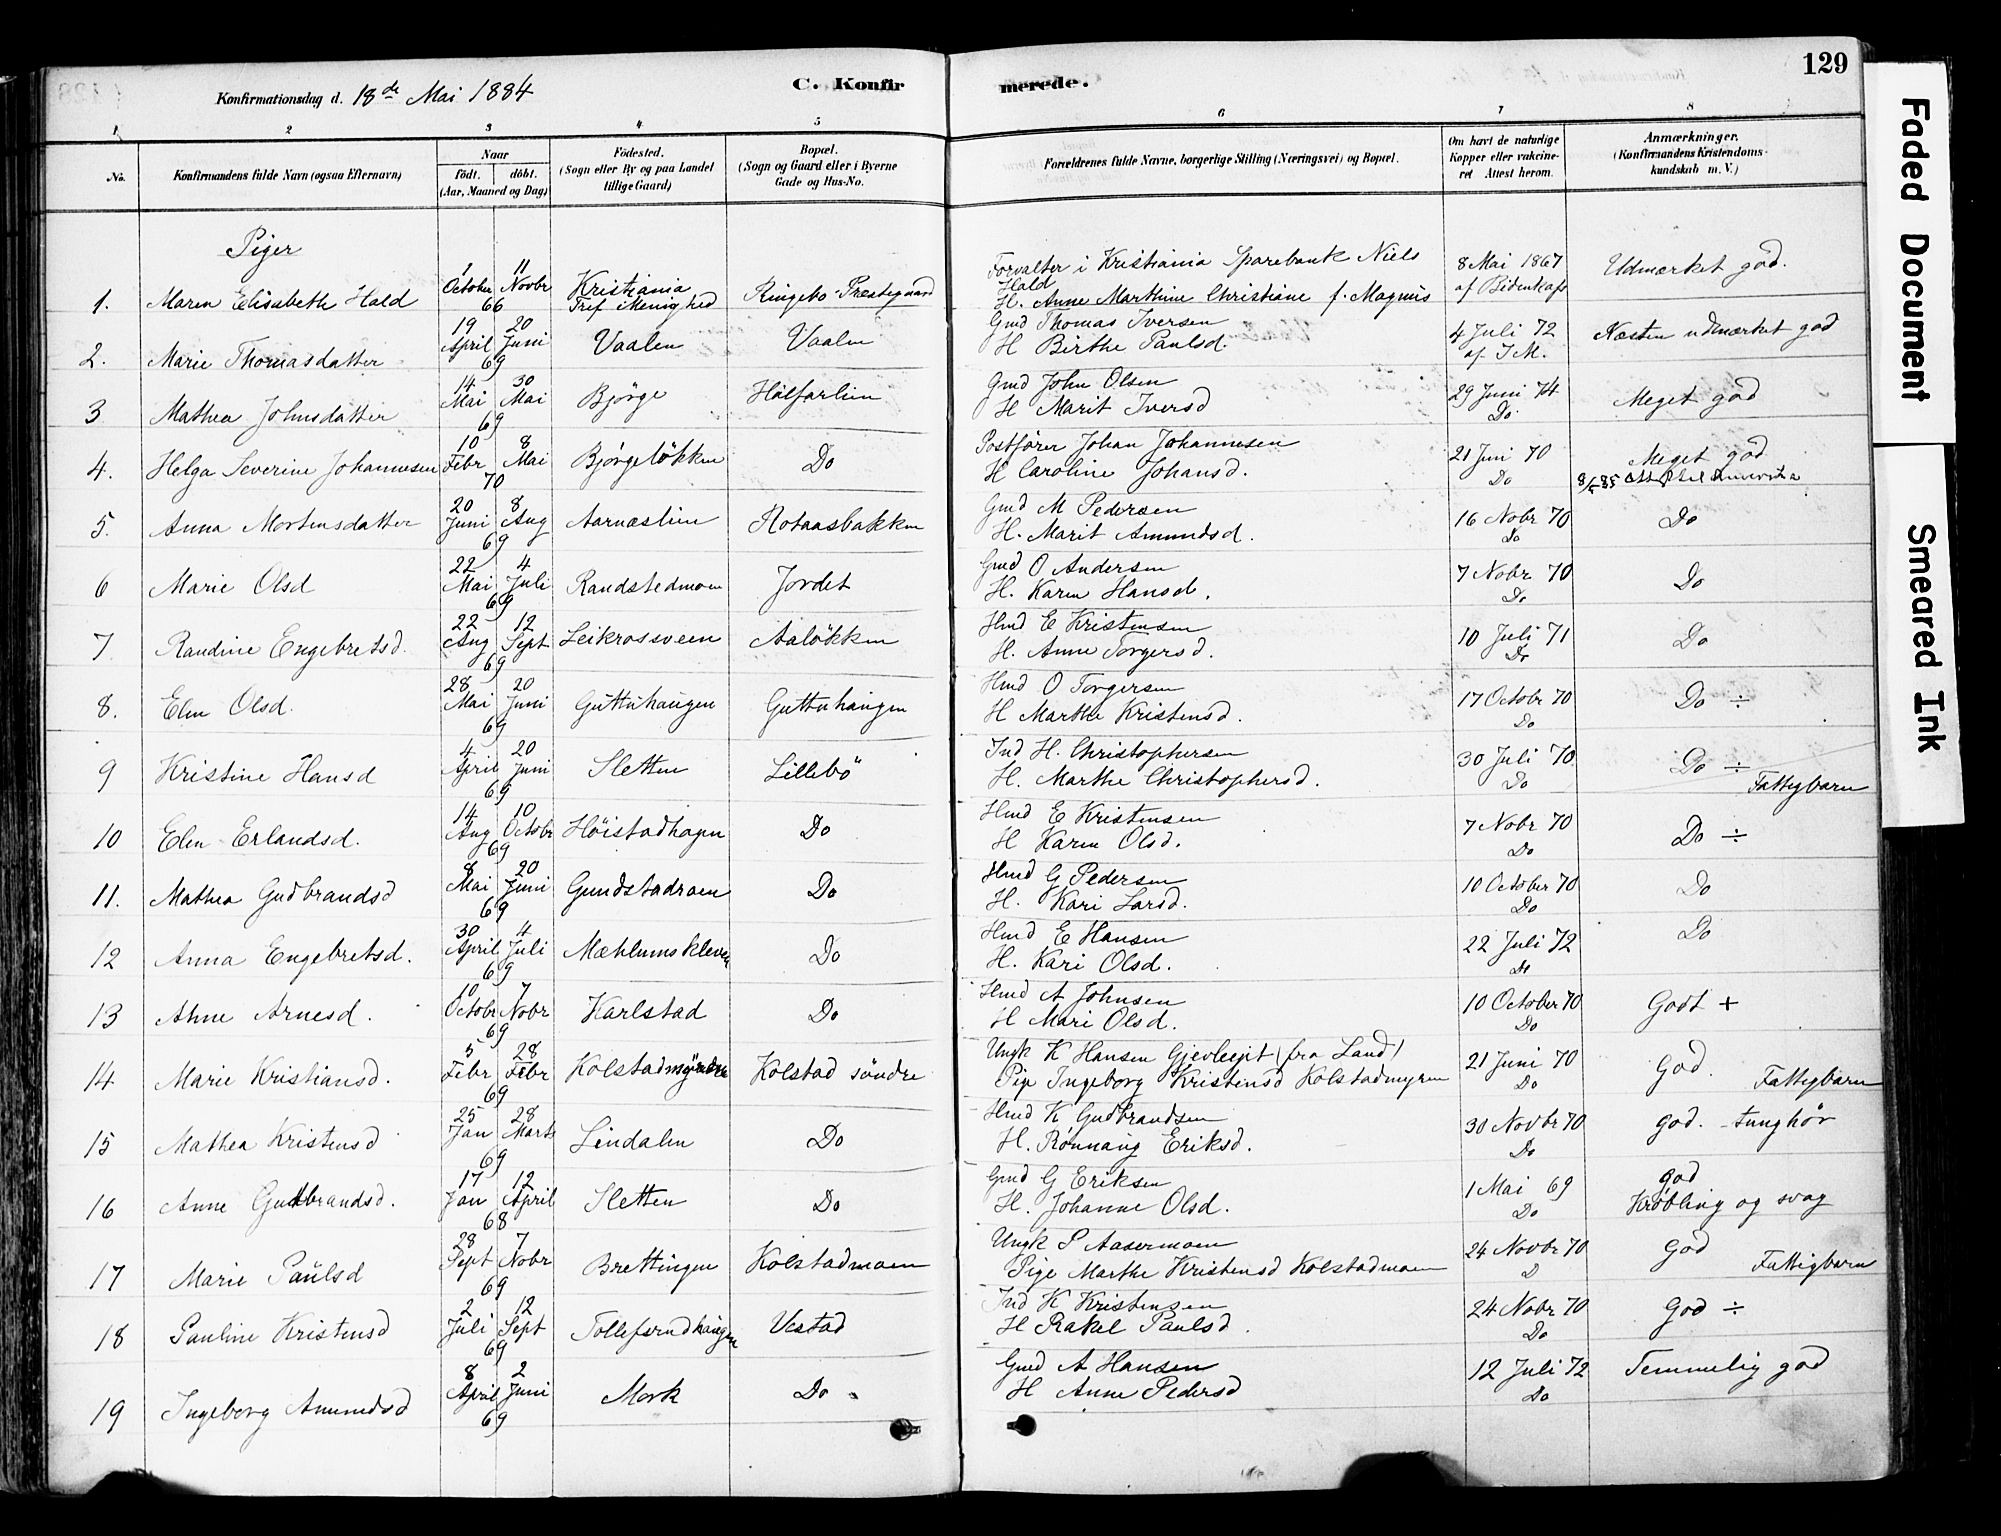 129
Konfirmationsdag d. 18de Mai 1884
C. Konfirmerede.
1 2 3 4 5 6 7 8
No.
Konfirmandens fulde Navn (ogsaa Efternavn)
Naar
födt. döbt.
(Aar, Maaned og Dag)
Födested.
(Sogn eller By og paa Landet tillige Gaard)
Bopæl.
(Sogn og Gaard eller i Byerne Gade og Hus-No.
Forældrenes fulde Navne, borgerlige Stilling (Næringsvei) og Bopæl.
Om havt de naturlige Kopper eller vakcineret Attest herom.
Anmærkninger.
(Konfirmandens Kristendomskundskab m. V.)
Piger
1. Maren Elisabeth Hald 1 October 11 Novbr 66 Kristiania Tref. Menighed Ringebo Præstegaard Forvalter i Kristiania Sparebank Niels Hald H. Anne Marthine Christiane f. Magnus 8 Mai 1867 af Bidenkap Udmærket god.
2. Marie Thomasdatter 19 April 20 Juni 69 Vaalen Vaalen Gmd Thomas Iversen H Birthe Paulsd. 4 Juli 72 af I M. Næsten udmærket god
3 Mathea Johnsdatter 14 Mai 30 Mai 69 Bjørge Hølfarlien Gmd John Olsen H Marit Iversd 29 Juni 74 Do. Meget god
4. Helga Severine Johannesen 10 Febr 8 Mai 70 Bjørgeløkken Do Postfører Johan Johannesen H Caroline Johansd. 21 Juni 70 Do Meget god
5. Anna Mortensdatter 20 Juni 8 Aug 69 Aarnæslien Flotaasbakken Gmd M Pedersen H. Marit Amundsd. 16 Nobr 70 Do Do
6 Marie Olsd 22 Mai 4 Juli 69 Randstedmoen Jordet Gmd O Andersen H. Karen Hansd. 7 Nobr 70 Do Do
7 Randine Engebretsd. 22 Aug 12 Sept 69 Leikrosveen Aaløkken Hmd E Kristensen H. Anne Torgersd. 10 Juli 71 Do Do
8. Elen Olsd. 28 Mai 20 Juni 69 Guttuhaugen Guttuhaugen Hmd O Torgersen H Marthe Kristensd. 17 Octobr 70 Do Do ÷
9 Kristine Hansd 4 April 20 Juni 69 Sletten Lillebö Ind H. Christophersen H. Marthe Christophersd. 30 Juli 70 Do Do ÷ Fattigbarn
10 Elen Erlandsd. 14 Aug 10 Octobr 69 Höistadhagen Do Hmd E Kristensen H Karen Olsd. 7 Nobr 70 Do Do ÷
11. Mathea Gudbrandsd 8 Mai 20 Juni 69 Gundstadroen Do Hmd G Pedersen H. Kari Larsd. 10 October 70 Do Do
12 Anna Engebretsd. 30 April 4 Juli 69 Mæhlumskleven Do Hmd E Hansen H. Kari Olsd. 22 Juli 72 Do Do
13 Anne Arnesd. 10 Octobr 7 Nobr 69 Karlstad Do Hmd A Johnsen H Mari Olsd. 10 October 70 Do Godt +
14 Marie Kristiansd. 5 Febr 28 Febr 69 Kolstad søndre Ungk K Hansen (fra Land) Pige Ingeborg Kristensd Kolstadmyren 21 Juni 70 Do God. Fattigbarn
15 Mathea Kristensd 25 Jan 28 Marts 69 Lindalen Do Hmd K Gudbrandsen H. Rønnaug Eriksd. 30 Novbr 70 Do god. tunghør
16 Anne Gudbrandsd. 17 Jan 12 April 68 Sletten Do Gmd G Eriksen H. Johanne Olsd. 1 Mai 69 Do god Krøbling og svag
17 Marie Paulsd 28 Sept 7 Nobr 69 Brettingen Kolstadmoen Ungk P Aasermoen Pige Marthe Kristensd Kolstadmoen 24 Novbr 70 D God Fattigbarn
18 Pauline Kristensd 2 Juli 12 Sept 69 Tollefsrudhaugen Vestad Ind K Kristensen H Rakel Paulsd. 24 Nobr 70 Do God ÷
19 Ingeborg Amundsd 8 April 2 Juni 69 Mork Do Gmd A Hansen H Anne Pedersd 12 Juli 72 Do Temmelig god
Faded Document
Smeared Ink